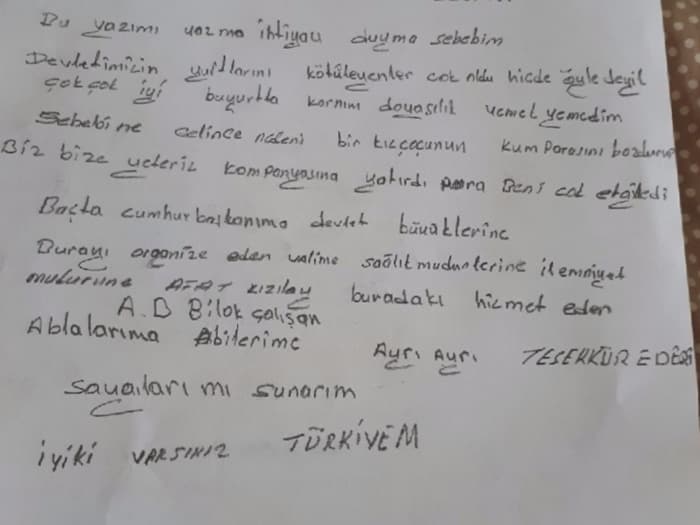 Bu yazımı yazma ihtiyacı duyma sebebim
Devletimizin yurtlarını kötüleyenler çok oldu hiçde öyle deyil
çok çok iyi buyurtta karnım doyasılık yemel yemedim
Sebebine gelince nedeni bir kızçoçunun kumparasını bozdurup
Biz bize yeteriz kompanyasına yatırdı para Beni çok etgiledi
Başta cumhurbaşkanıma devlet büyüklerine
Burayı organize eden valime sağlıkmudurlerine ilemniyet
mudurune AFAT kızılay buradaki hizmet eden
A.B Bilok çalışan
Ablalarıma Abilerime
Ayrı Ayrı TEŞERKÜR EDERİM
saygılarımı sunarım
iyiki VARSINIZ TÜRKİYEM